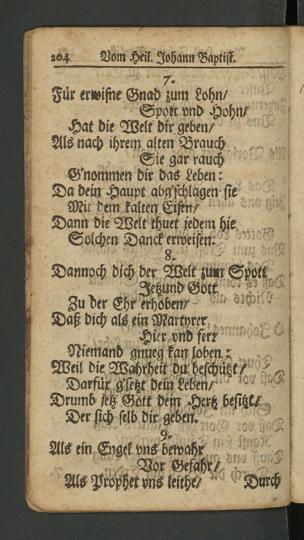 204 Vom Heil. Johann Baptist.
7.
Für erwisne Gnad zum Lohn/
Spott vnd Hohn/
Hat die Welt dir geben/
Als nach ihrem alten Brauch
Sie gar rauch
G'nommen dir das Leben:
Da dein Haupt abg'schlagen sie
Mit dem kalten Eisen/
Dann die Welt thuet jedem hie
Solchen Danck erweisen.
8.
Dannoch dich der Welt zum Spott
Jetzund Gott
Zu der Ehr erhoben/
Daß dich als ein Martyrer
Hier vnd ferr
Niemand gnueg kan loben:
Weil die Wahrheit du beschützt/
Darfür g'setzt dein Leben/
Drumb jetz Gott dein Hertz besitzt/
Der sich selb dir geben.
9.
Als ein Engel vns bewahr
Vor Gefahr/
Als Prophet vns leithe/ Durch